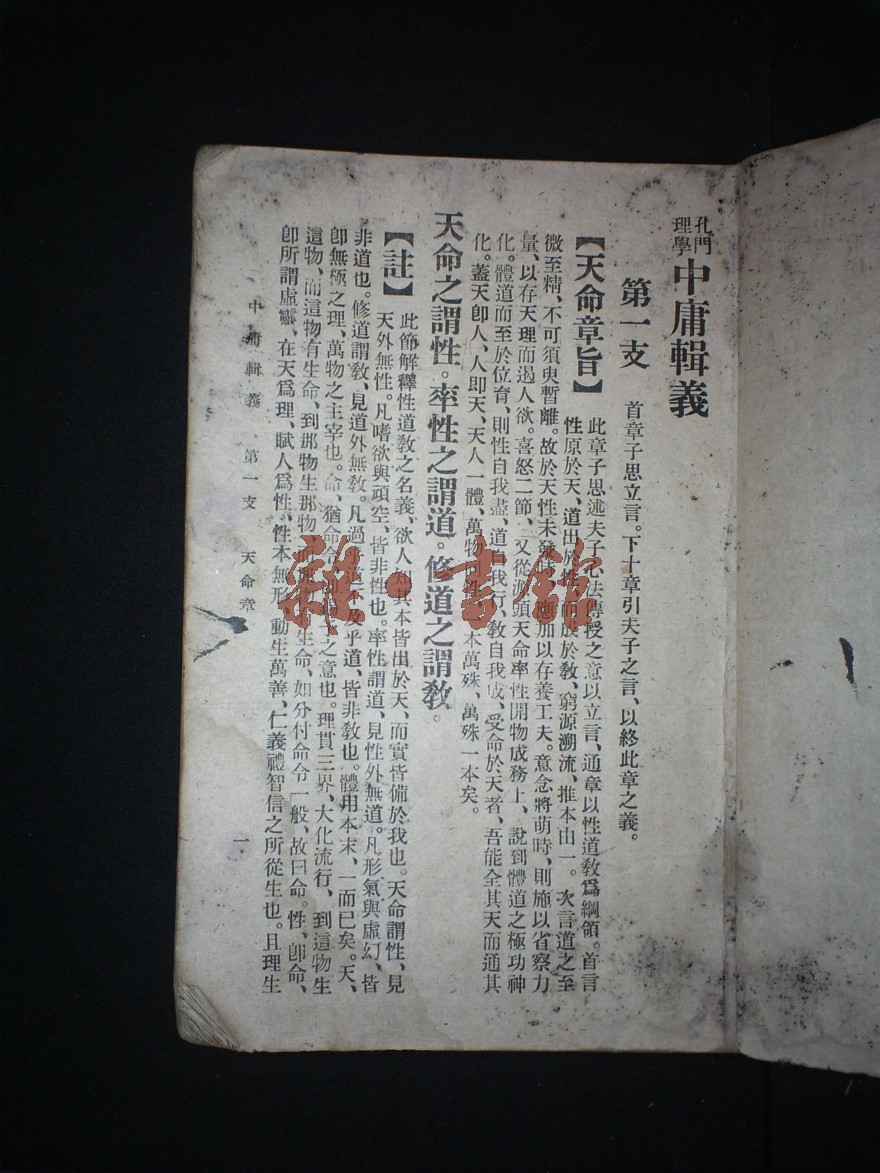 孔門理學 中庸輯義
第一支 首章子思立言。下十章引夫子之言、以終此章之義。
【天命章旨】 此章子思述夫子心法傳授之意以立言、通章以性道教爲綱領。首言
性原於天、道出於性、而成於教、窮源溯流、推本由一。次言道之至
微至精、不可須臾暫離。故於天性未發時、應加以存養工夫。意念將萌時、則施以省察力
量、以存天理而遏人欲。喜怒二節、又從源頭天命率性開物成務上、說到體道之極功神
化。體道而至於位育、則性自我盡、道自我行、教自我成、受命於天者、吾能全其天而通其
化。蓋天卽人、人卽天、天人一體、萬物同性、一本萬殊、萬殊一本矣。
天命之謂性。率性之謂道。修道之謂教。
【註】 此節解釋性道教之名義、欲人知其本皆出於天、而實皆備於我也。天命謂性、見
天外無性。凡嗜欲與頑空、皆非性也。率性謂道、見性外無道。凡形氣與虛幻、皆
非道也。修道謂教、見道外無教。凡過乎道不及乎道、皆非教也。體用本末、一而已矣。天、
卽無極之理、萬物之主宰也。命、猶命令、之意也。理貫三界、大化流行、到這物生
這物、而這物有生命、到那物生那物、生命、如分付命令一般、故曰命。性、卽命、
卽所謂虛靈、在天爲理、賦人爲性、性本無形、動生萬善、仁義禮智信之所從生也。且理生
中庸輯義 第一支 天命章 一
雜·書館